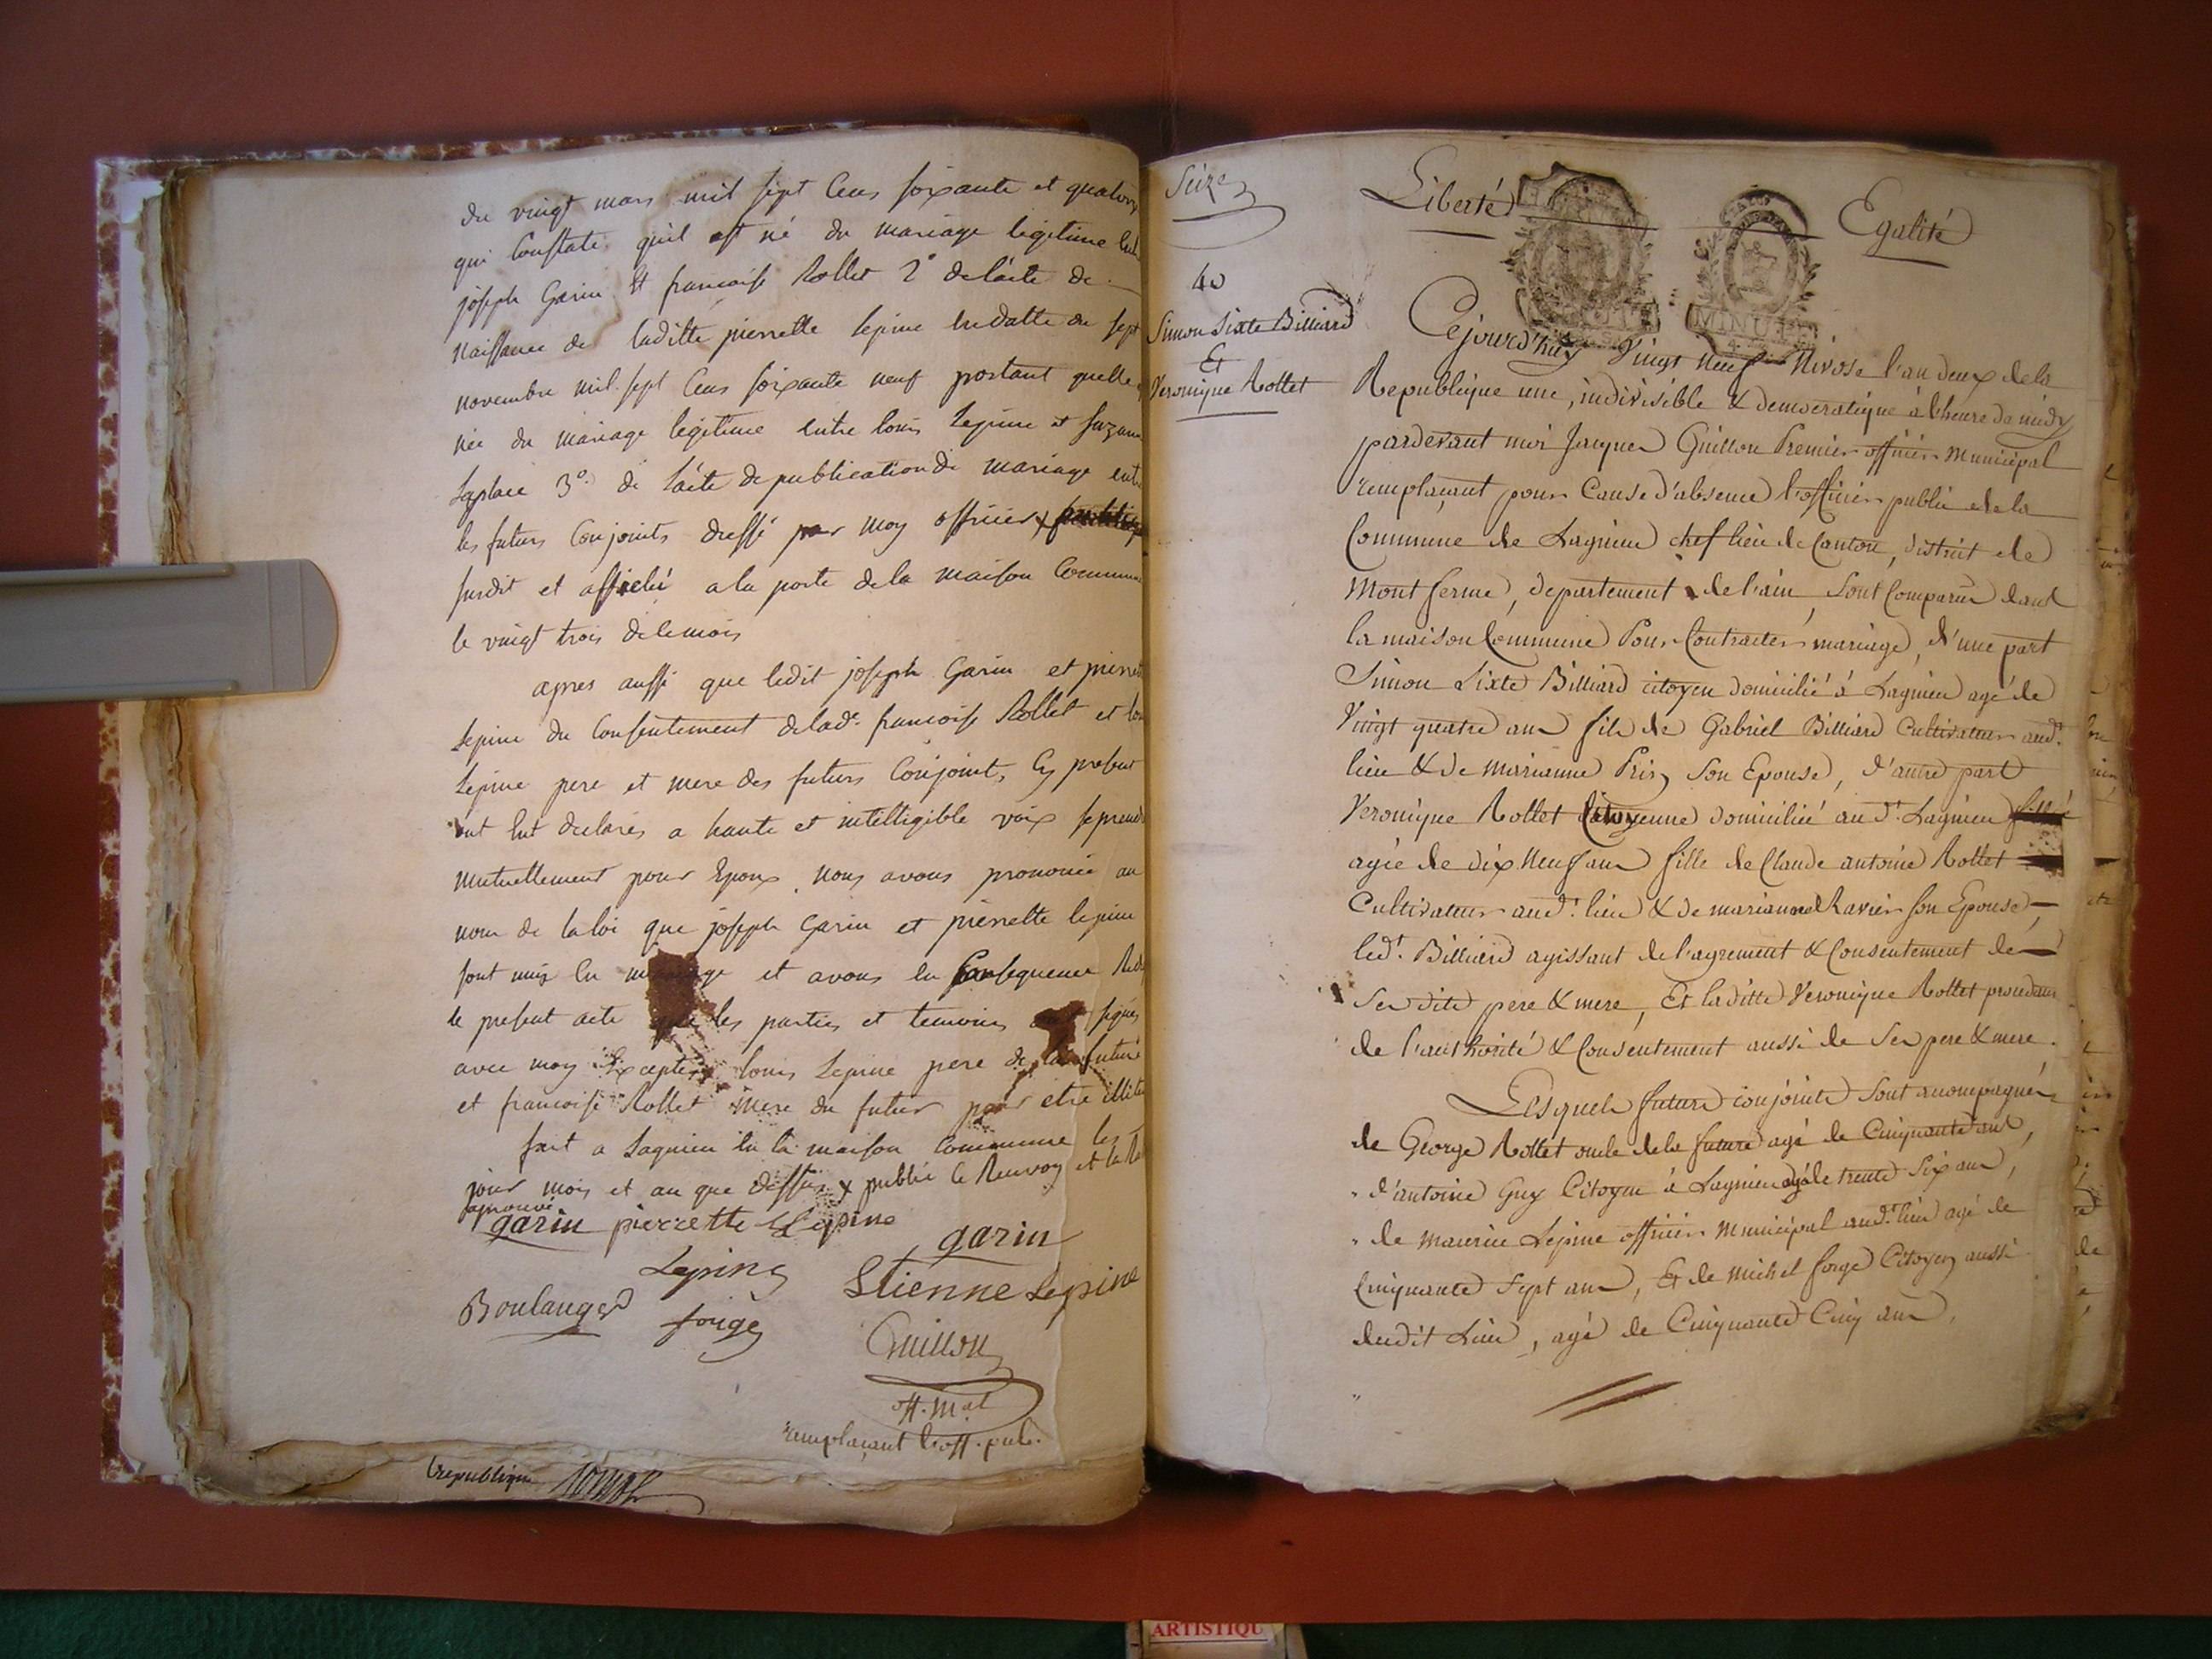 du vingt mars mil sept Cens soixante et quatorze
qui Constate qu'il est né du mariage legitime
joseph Garin et francoise Rollet 2° de l'acte de
naissance de laditte pierrette lepine en datte du sept
novembre mil sept Cens soixante neuf portant quelle
née du mariage legitime entre louis Lepine et suzanne
Laplace 3° de l'acte de publication de mariage entre
les futurs Conjoints dressé par moy officier x
susdit et affiché a la porte de la maison Commune
le vingt trois de ce mois
apres aussi que ledit joseph Garin et pierrette
Lepine du Consentement de lad.e francoise Rollet et louis
Lepine pere et mere des futurs Conjoints Cy present
ont eut declarés a haute et intelligible voix se prendre
mutuellement pour Epoux, nous avons prononcé au
nom de la loi que joseph Garin et pierrette lepine
sont unis en mariage et avons en Consequence
le present acte que les parties et temoins ont signés
avec moy Exceptés louis Lepine pere de la future
et francoise Rollet mere du futur pour etre illiterés
fait a Lagnieu en la maison Commune les
jour mois et an que dessus x public le Renvoy et la
aprouvé
garin pierrette Lepine
garin
Lepine
Etienne Lepine
Boulanger
forge
Guillon
off. m.al
remplaçant l'off. pub.
republique
Seize
40
Simon Sixte Billiard
Et
Veronique Rollet
Liberté
Egalité
MINUTE
Cejourd'huy Vingt neuf Nivose l'an deux de la
Republique une, indivisible & democratique à l'heure de midy
pardevant moi Jacques Guillon Premier officier municipal
remplaçant pour Cause d'absence l'officier public de la
Commune de Lagnieu chef lieu de Canton, district de
Mont ferme, departement de l'ain, Sont Comparus dans
la maison Commune Pour Contracter mariage, d'une part
Simon Sixte Billiard citoyen domicilié à Lagnieu agé de
Vingt quatre ans fils de Gabriel Billiard Cultivateur aud.t
lieu & de Marianne Prin Son Epouse, d'autre part
Veronique Rollet Citoyenne domiciliée au d.t Lagnieu
agée de dix neuf ans fille de Claude antoine Rollet
Cultivateur aud.t lieu & de marianne Ravier son Epouse,
led.t Billiard agissant de l'agrement & Consentement de
Ses dits pere & mere, Et laditte Veronique Rollet procedant
de l'authorité & Consentement aussi de Ses pere & mere.
Lesquels futurs conjoints Sont accompagnés
de George Rollet oncle de la future agé de Cinquante ans,
d'antoine Guy Citoyen à Lagnieu agé de trente Six ans,
de maurice Lepine officier municipal aud.t lieu agé de
Cinquante Sept ans, Et de michel forge Citoyen aussi
dudit Lieu, agé de Cinquante Cinq ans,
ARTISTIQU